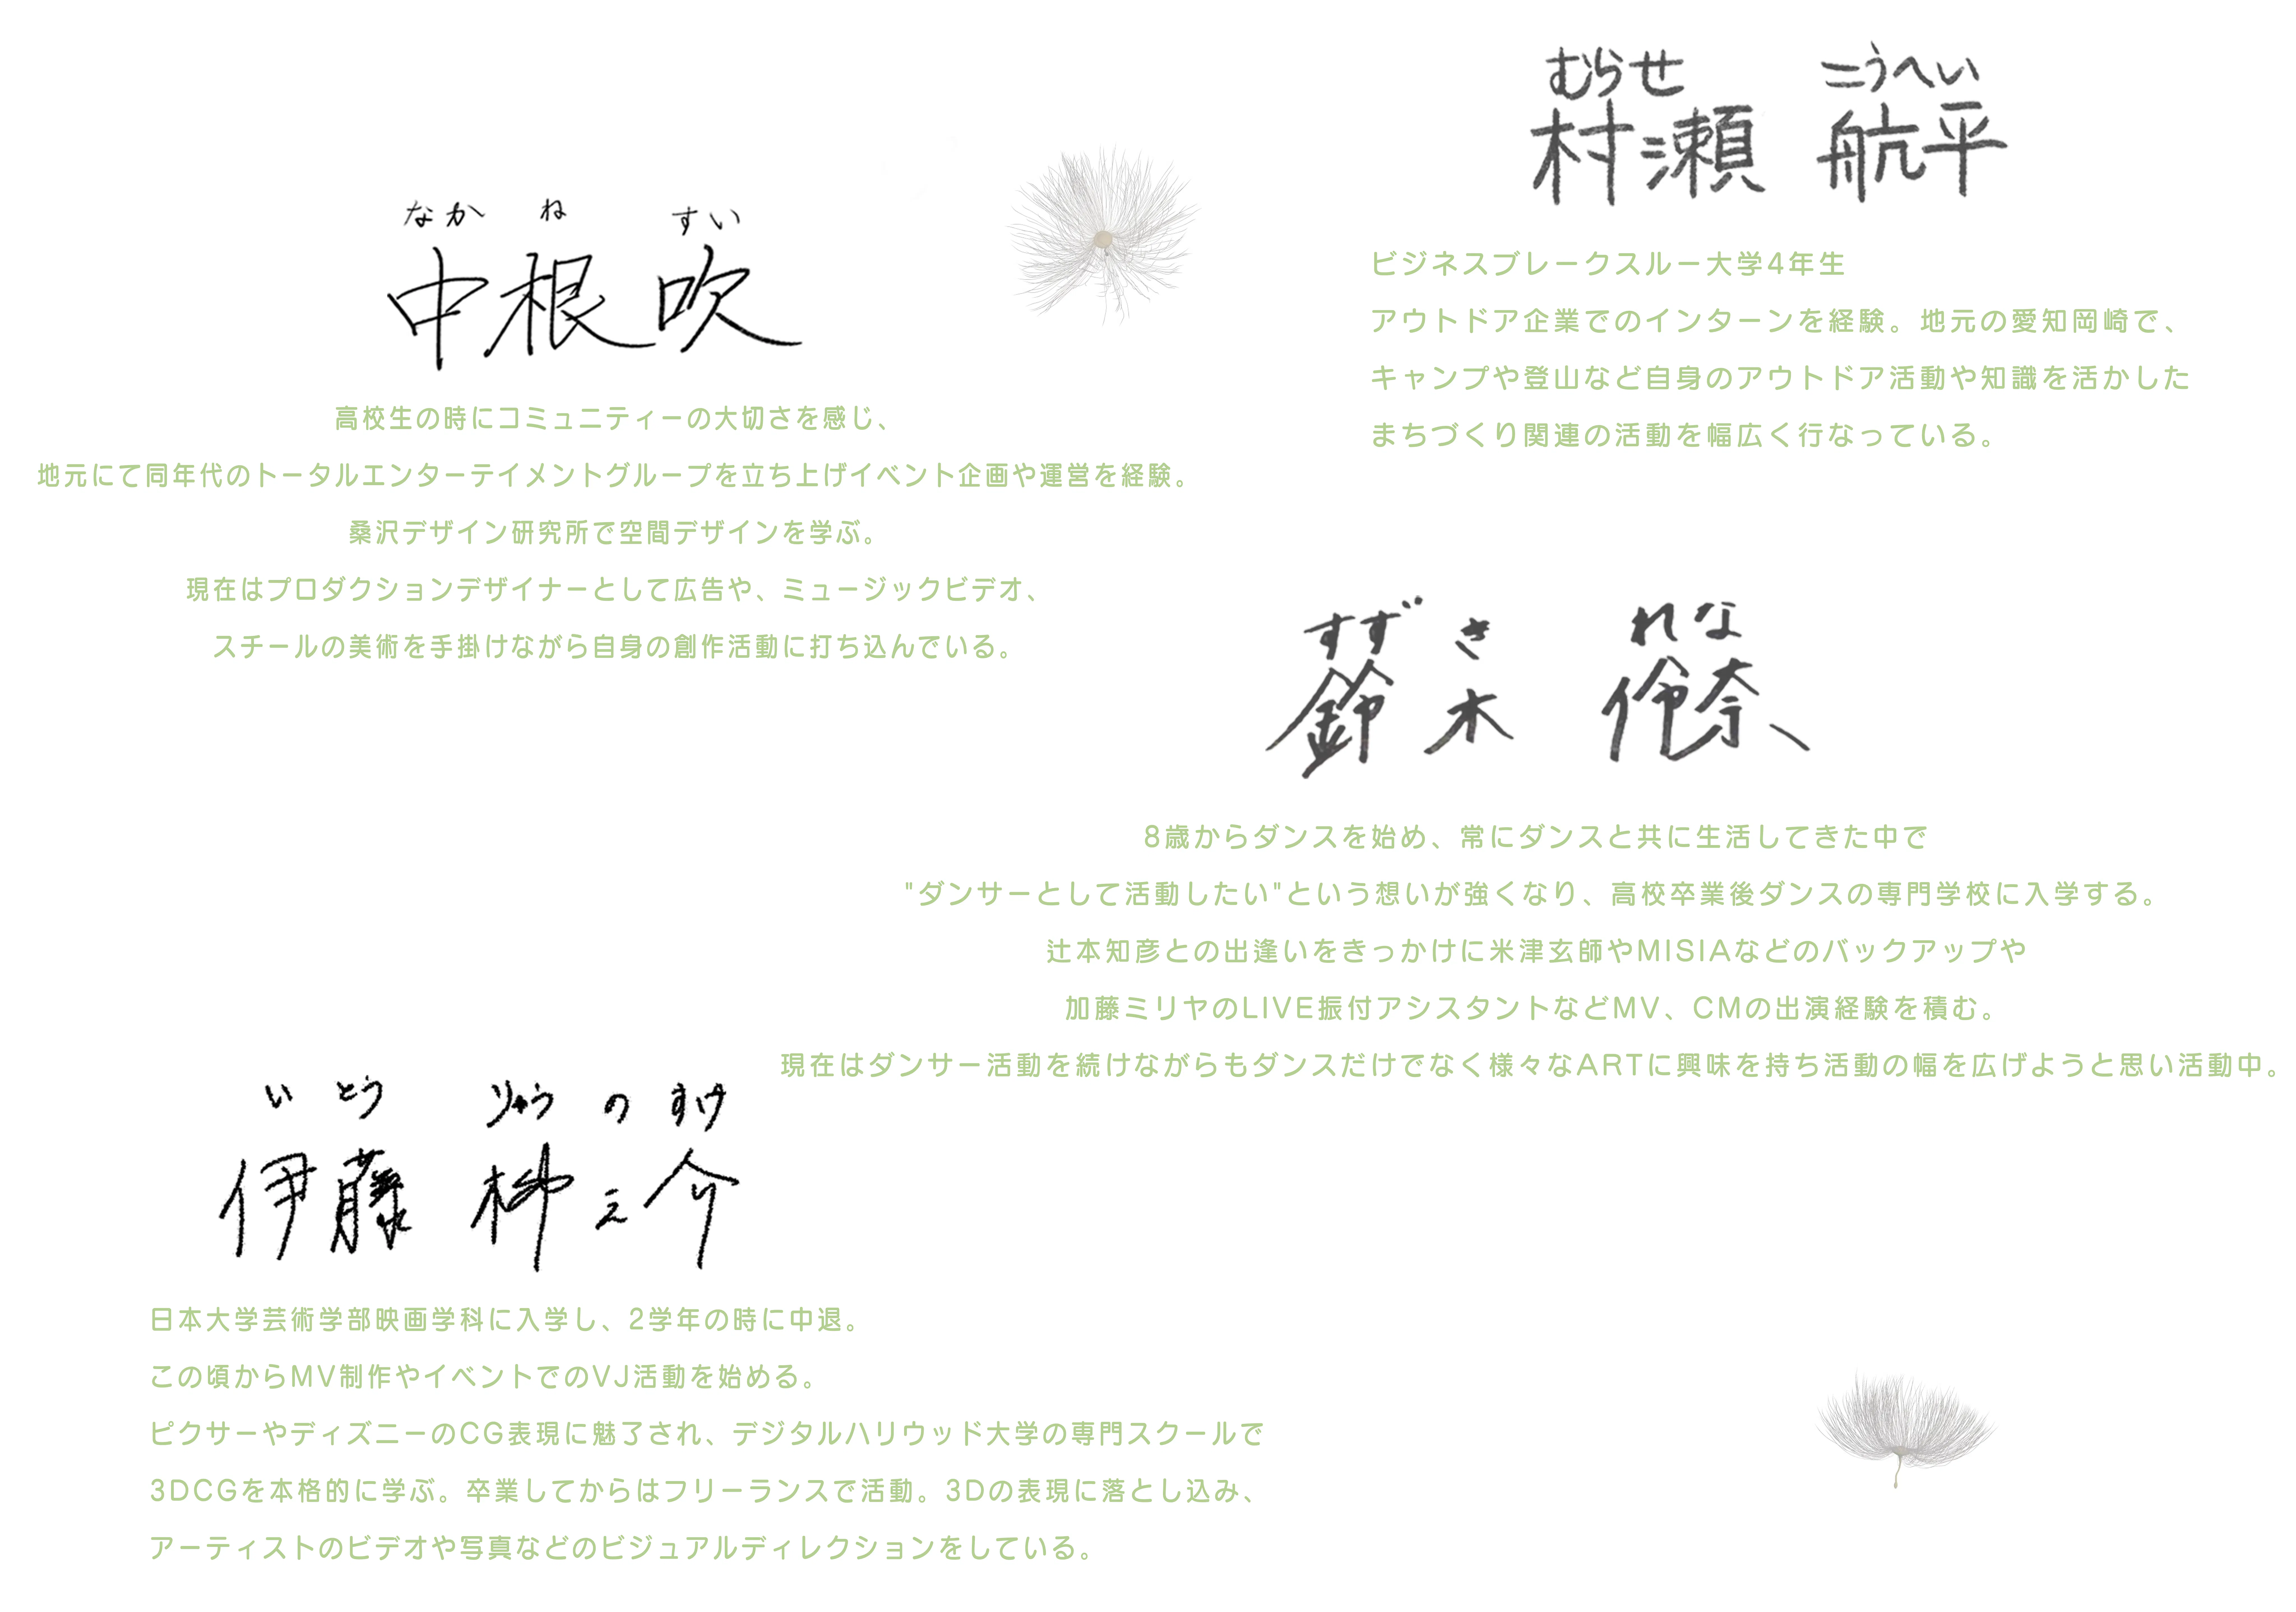 なか ね すい
中根 吹
高校生の時にコミュニティーの大切さを感じ、
地元にて同年代のトータルエンターテイメントグループを立ち上げイベント企画や運営を経験。
桑沢デザイン研究所で空間デザインを学ぶ。
現在はプロダクションデザイナーとして広告や、ミュージックビデオ、
スチールの美術を手掛けながら自身の創作活動に打ち込んでいる。
むらせ こうへい
村瀬 航平
ビジネスブレークスルー大学4年生
アウトドア企業でのインターンを経験。地元の愛知岡崎で、
キャンプや登山など自身のアウトドア活動や知識を活かした
まちづくり関連の活動を幅広く行なっている。
すず き れな
鈴木 伶奈
8歳からダンスを始め、常にダンスと共に生活してきた中で
"ダンサーとして活動したい"という想いが強くなり、高校卒業後ダンスの専門学校に入学する。
辻本知彦との出逢いをきっかけに米津玄師やMISIAなどのバックアップや
加藤ミリヤのLIVE振付アシスタントなどMV、CMの出演経験を積む。
現在はダンサー活動を続けながらもダンスだけでなく様々なARTに興味を持ち活動の幅を広げようと思い活動中。
い とう りゅう の すけ
伊藤 柳之介
日本大学芸術学部映画学科に入学し、2学年の時に中退。
この頃からMV制作やイベントでのVJ活動を始める。
ピクサーやディズニーのCG表現に魅了され、デジタルハリウッド大学の専門スクールで
3DCGを本格的に学ぶ。卒業してからはフリーランスで活動。3Dの表現に落とし込み、
アーティストのビデオや写真などのビジュアルディレクションをしている。